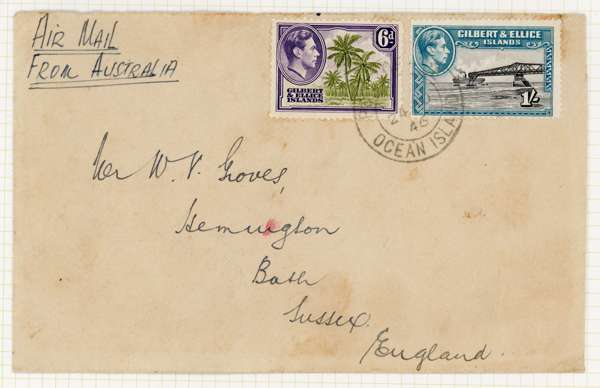 AIR MAIL
FROM AUSTRALIA
6d
GILBERT
& ELLICE
ISLANDS
GILBERT & ELLICE
ISLANDS
1/-
24
46
OCEAN ISLA
W. V. Groves,
Hemington
Bath
Sussex.
England.